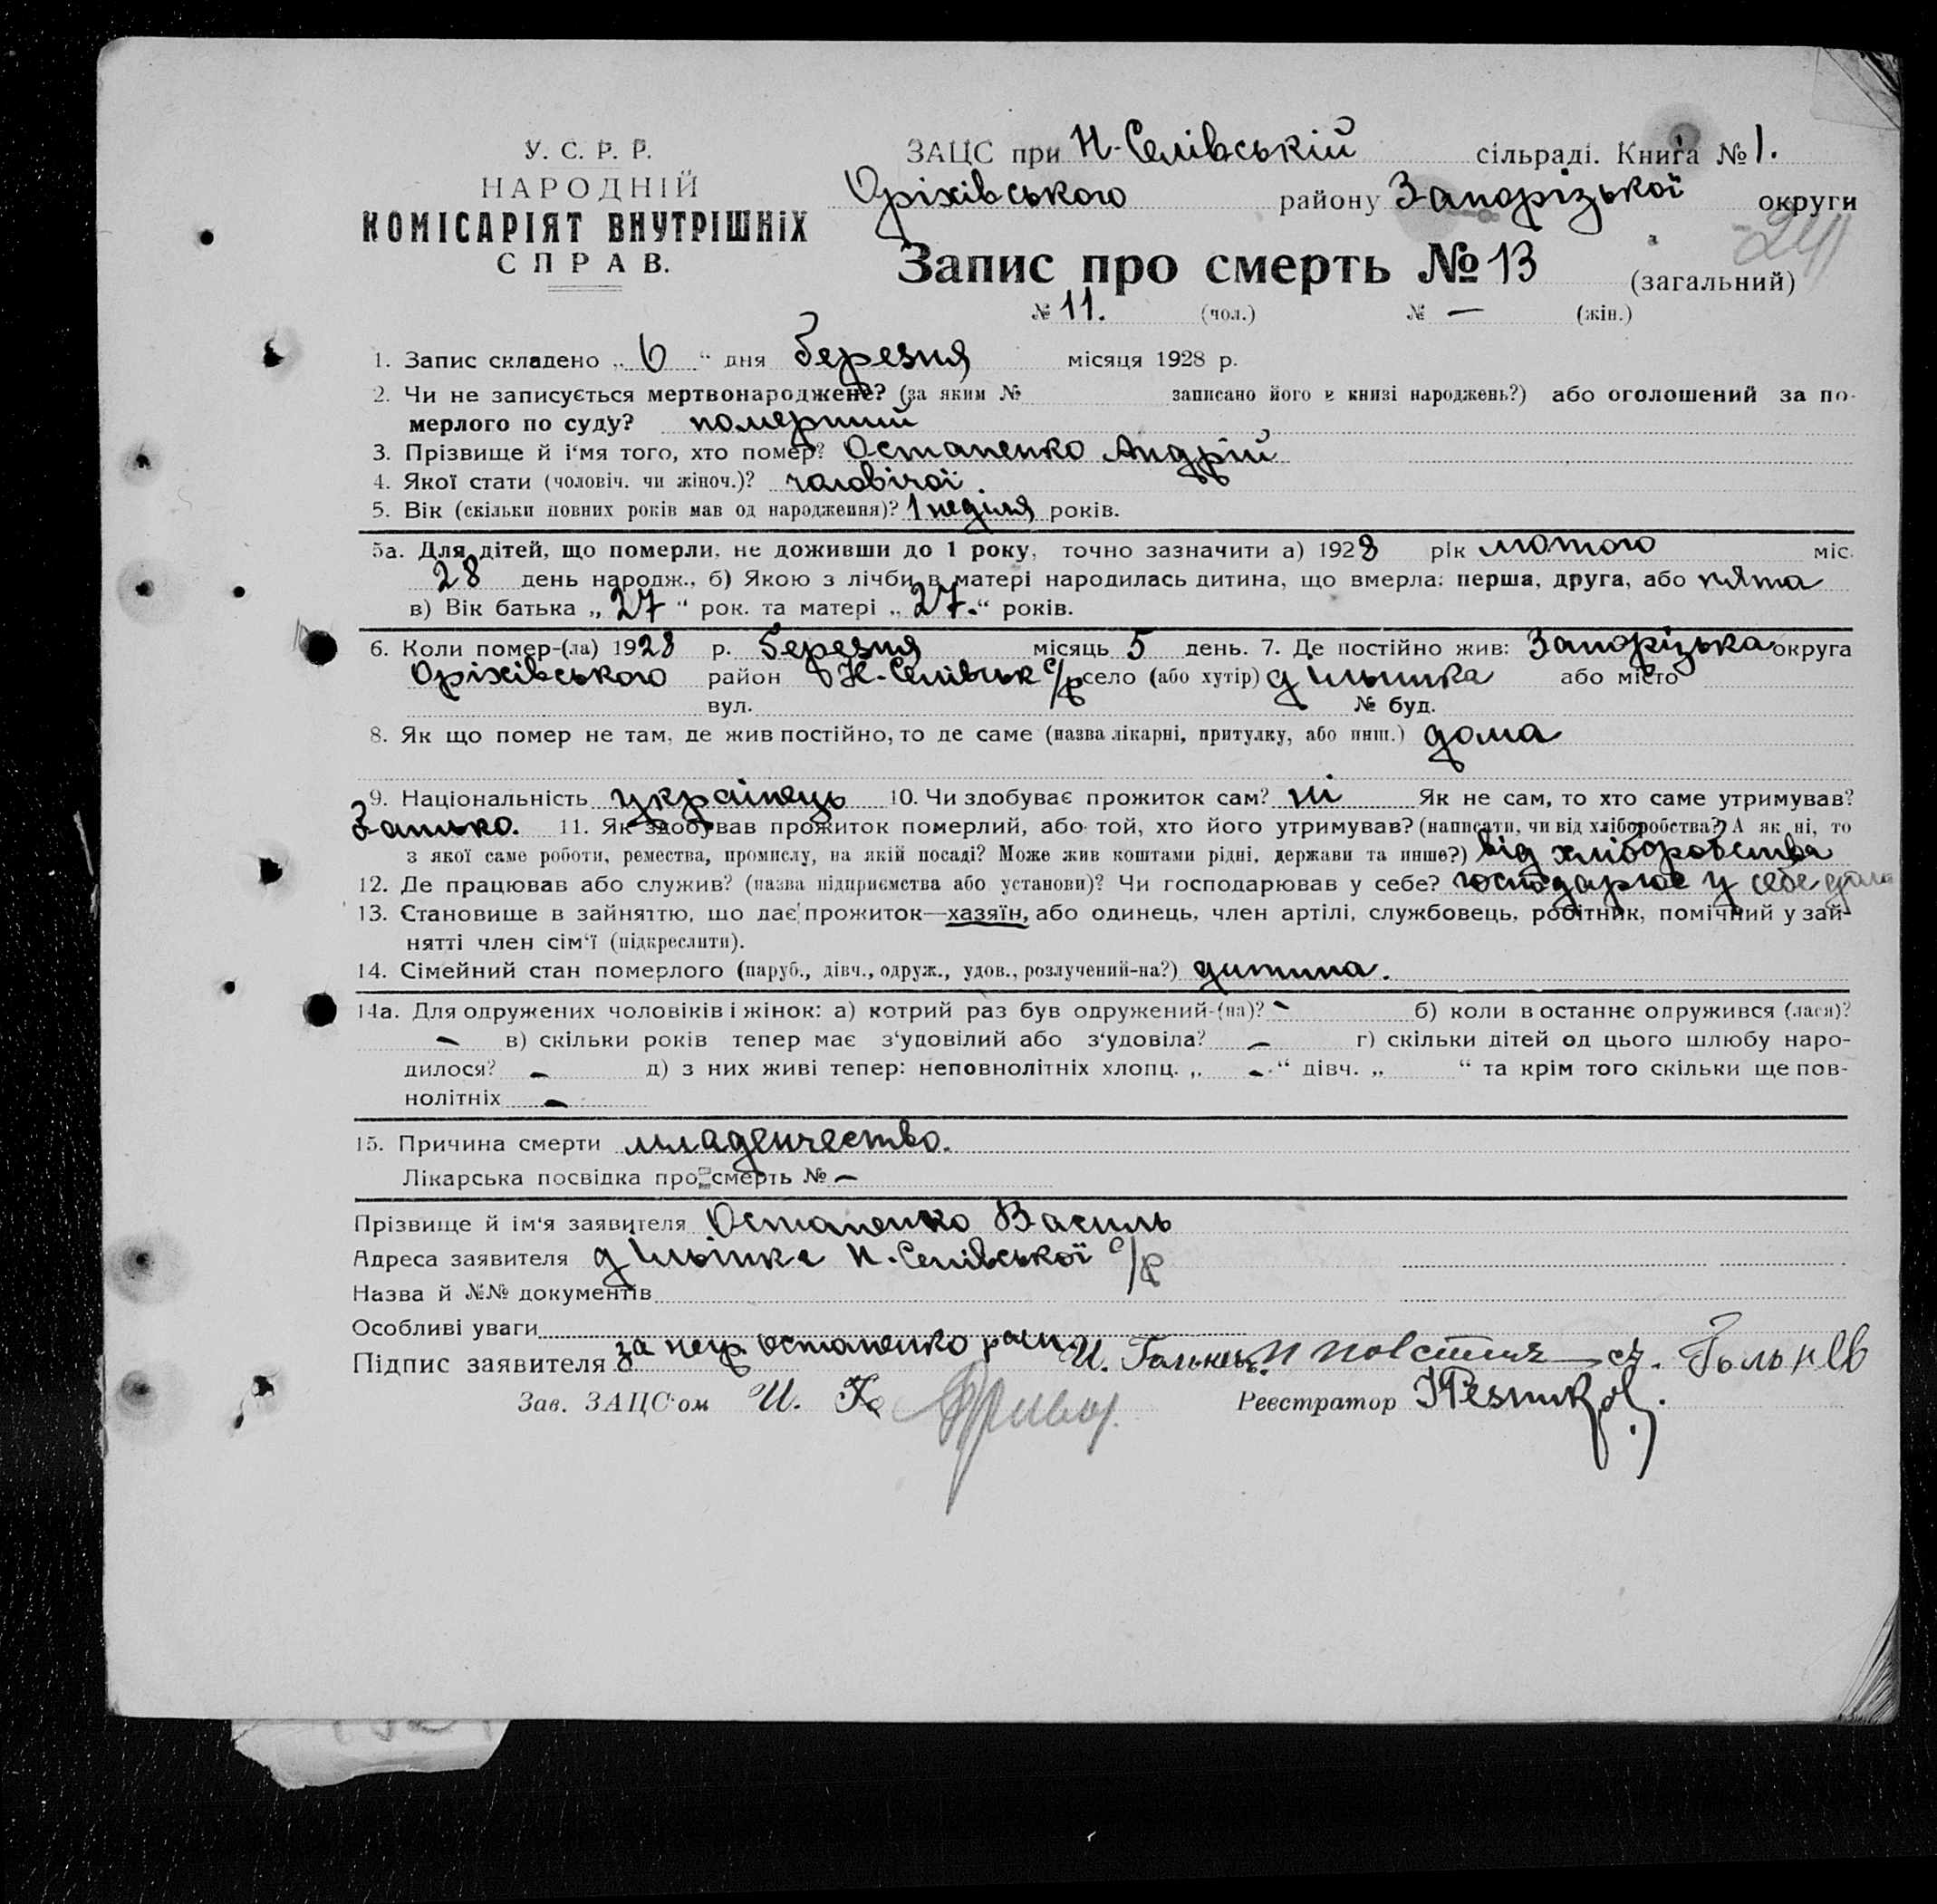 У. С. Р. Р.
НАРОДНІЙ
КОМІСАРІЯТ ВНУТРІШНІХ
СПРАВ.
ЗАЦС при Н-Селівській сільраді. Книга № 1.
Оріхівського району Запорізької округи
Запис про смерть № 13 (загальний)
№ 11. (чол.) № — (жін.)
1. Запис складено „ 6 “ дня березня місяця 1928 р.
2. Чи не записується мертвонароджене? (за яким № записано його в книзі народжень?) або оголошений за по-
мерлого по суду? померший
3. Прізвище й і'мя того, хто помер? Остапенко Андрій
4. Якої стати (чоловіч. чи жіноч.)? чоловічої.
5. Вік (скільки повних років мав од народження)? 1 неділя років.
5а. Для дітей, що померли, не доживши до 1 року, точно зазначити а) 1928 рік лютого міс.
28 день народж., б) Якою з лічби в матері народилась дитина, що вмерла: перша, друга, або пята
в) Вік батька „ 27 “ рок. та матері „ 27. “ років.
6. Коли помер-(ла) 1928 р. березня місяць 5 день. 7. Де постійно жив: Запорізька округа
Оріхівського район Н-Селівськ с/р село (або хутір) або місто
вул. № буд.
8. Як що помер не там, де жив постійно, то де саме (назва лікарні, притулку, або инш.) дома
9. Національність українець 10. Чи здобуває прожиток сам? ні Як не сам, то хто саме утримував?
Батько. 11. Як здобував прожиток померлий, або той, хто його утримував? (написати, чи від хліборобства? А як ні, то
з якої саме роботи, ремества, промислу, на якій посаді? Може жив коштами рідні, держави та инше?) від хліборобства
12. Де працював або служив? (назва підприємства або установи)? Чи господарював у себе? господарює у себе дома
13. Становище в зайняттю, що дає прожиток—хазяїн, або одинець, член артілі, службовець, робітник, помічний у зай-
нятті член сім'ї (підкреслити).
14. Сімейний стан померлого (паруб., дівч., одруж., удов., розлучений-на?) дитина.
14а. Для одружених чоловіків і жінок: а) котрий раз був одружений-(на)? – б) коли в останнє одружився (лася)?
– в) скільки років тепер має з'удовілий або з'удовіла? – г) скільки дітей од цього шлюбу наро-
дилося? – д) з них живі тепер: неповнолітніх хлопц. „ – “ дівч. „ “ та крім того скільки ще пов-
нолітніх –
15. Причина смерти младенчество.
Лікарська посвідка про смерть № –
Прізвище й ім'я заявителя Остапенко Василь
Адреса заявителя Н-Селівської с/р
Назва й №№ документів
Особливі уваги
Підпис заявителя за непр Остапенко
Зав. ЗАЦС'ом Реєстратор